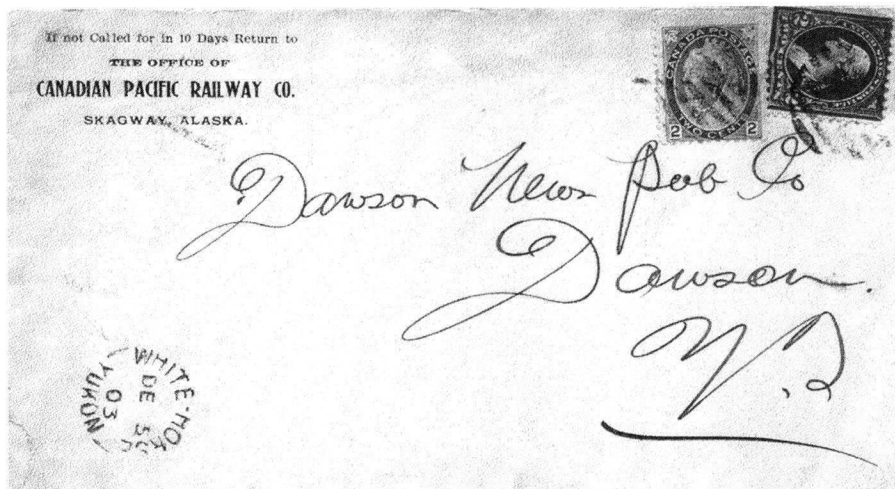 If not Called for in 10 Days Return to
THE OFFICE OF
CANADIAN PACIFIC RAILWAY CO.
SKAGWAY, ALASKA.
CANADA POSTAGE
2 TWO CENTS 2
Dawson News Pub Co
Dawson.
Y.T.
WHITE-HO
DE 5
03
YUKON